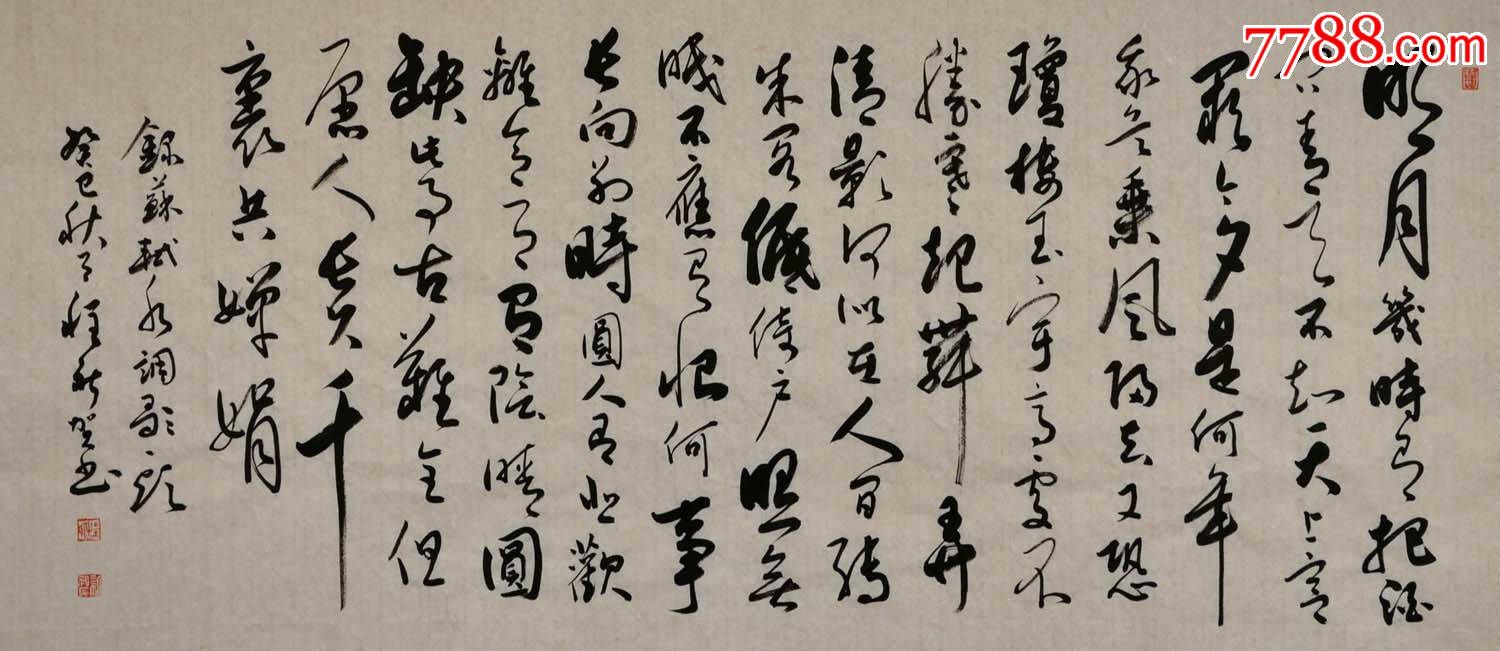 7788.com
明月幾時有把酒
問青天不知天上宮
闕今夕是何年
我欲乘風歸去又恐
瓊樓玉宇高處不
勝寒起舞弄
清影何似在人間轉
朱閣低綺户照無
眠不應有恨何事
長向别時圓人有悲歡
離合月有陰晴圓
缺此事古難全但
愿人長久千
裏共嬋娟
錄蘇軾水調歌頭
癸巳秋月程賀書